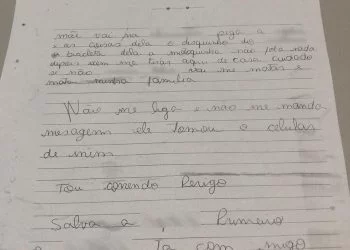 mãe vai na pega a
e as coisas dela o disquinho do
bracelete dela a motoquinha não fala nada
depois vem me tirar aqui de casa cuidado
se não vai me matar e
mata minha familia
Não me liga e não me manda
mensagem ele tomou o celular
de mim
Tou corendo Perigo
Salva a , Primeiro
Ta com migo